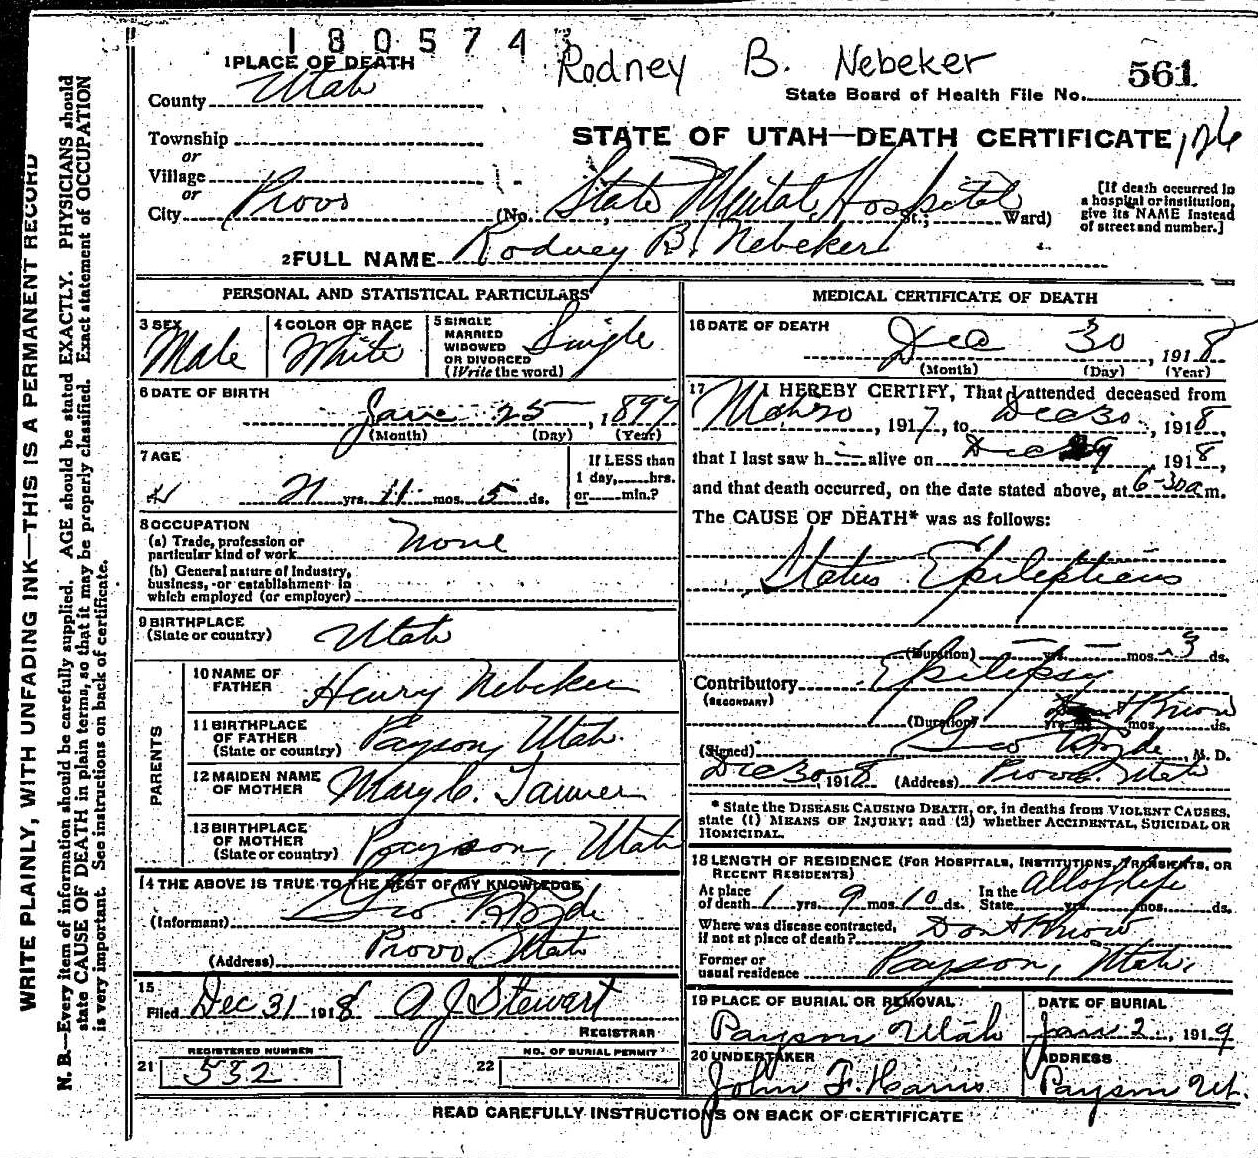 180574
Rodney B. Nebeker
1 PLACE OF DEATH
561
County Utah
State Board of Health File No.
Township
STATE OF UTAH—DEATH CERTIFICATE
126
or
Village
or
City Provo (No. State Mental Hospital St.; Ward)
[If death occurred in
a hospital or institution,
give its NAME instead
of street and number.]
2 FULL NAME Rodney B. Nebeker
PERSONAL AND STATISTICAL PARTICULARS
3 SEX
Male
4 COLOR OR RACE
White
5 SINGLE
MARRIED
WIDOWED
OR DIVORCED
(Write the word)
Single
6 DATE OF BIRTH
Jan 25, 1897
(Month) (Day) (Year)
7 AGE
21 yrs. 11 mos. 5 ds.
If LESS than
1 day, hrs.
or min.?
8 OCCUPATION
(a) Trade, profession or
particular kind of work None
(b) General nature of Industry,
business, or establishment in
which employed (or employer)
9 BIRTHPLACE
(State or country) Utah
PARENTS
10 NAME OF
FATHER Henry Nebeker
11 BIRTHPLACE
OF FATHER
(State or country) Payson, Utah.
12 MAIDEN NAME
OF MOTHER Mary C. Tanner
13 BIRTHPLACE
OF MOTHER
(State or country) Payson, Utah
14 THE ABOVE IS TRUE TO THE BEST OF MY KNOWLEDGE
(Informant) Geo Hyde
(Address) Provo, Utah
15
Filed Dec 31 1918 A J Stewart
REGISTRAR
REGISTERED NUMBER
21 532
NO. OF BURIAL PERMIT
22
MEDICAL CERTIFICATE OF DEATH
16 DATE OF DEATH
Dec 30, 1918
(Month) (Day) (Year)
17 I HEREBY CERTIFY, That I attended deceased from
Mch 20, 1917, to Dec 30, 1918,
that I last saw h alive on Dec 29 1918,
and that death occurred, on the date stated above, at 6-30 a m.
The CAUSE OF DEATH* was as follows:
Status Epilepticus
(Duration) — yrs. — mos. 3 ds.
Contributory Epilepsy
(SECONDARY)
(Duration) yrs. mos. ds. Don't Know
(Signed) Geo Hyde, M. D.
Dec 30, 1918 (Address) Provo, Utah
* State the DISEASE CAUSING DEATH, or, in deaths from VIOLENT CAUSES,
state (1) MEANS OF INJURY; and (2) whether ACCIDENTAL, SUICIDAL OR
HOMICIDAL.
18 LENGTH OF RESIDENCE (FOR HOSPITALS, INSTITUTIONS, TRANSIENTS, OR
RECENT RESIDENTS)
At place
of death 1 yrs. 9 mos. 10 ds.
In the
State yrs. mos. ds. All of life
Where was disease contracted,
if not at place of death? Don't Know
Former or
usual residence Payson, Utah,
19 PLACE OF BURIAL OR REMOVAL
Payson Utah
DATE OF BURIAL
Jan 2, 1919
20 UNDERTAKER
John F. Harris
ADDRESS
Payson Ut.
READ CAREFULLY INSTRUCTIONS ON BACK OF CERTIFICATE
WRITE PLAINLY, WITH UNFADING INK—THIS IS A PERMANENT RECORD
N. B.—Every item of information should be carefully supplied. AGE should be stated EXACTLY. PHYSICIANS should
state CAUSE OF DEATH in plain terms, so that it may be properly classified. Exact statement of OCCUPATION
is very important. See instructions on back of certificate.